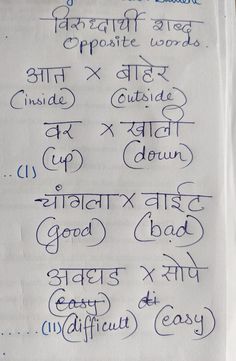 विरुध्दार्थी शब्द
Opposite words.
आत × बाहेर
(inside) (outside)
वर × खाली
(up) (down)
..(I)
चांगला × वाईट
(good) (bad)
अवघड × सोपे
(easy) di
.....(II) (difficult) (easy)